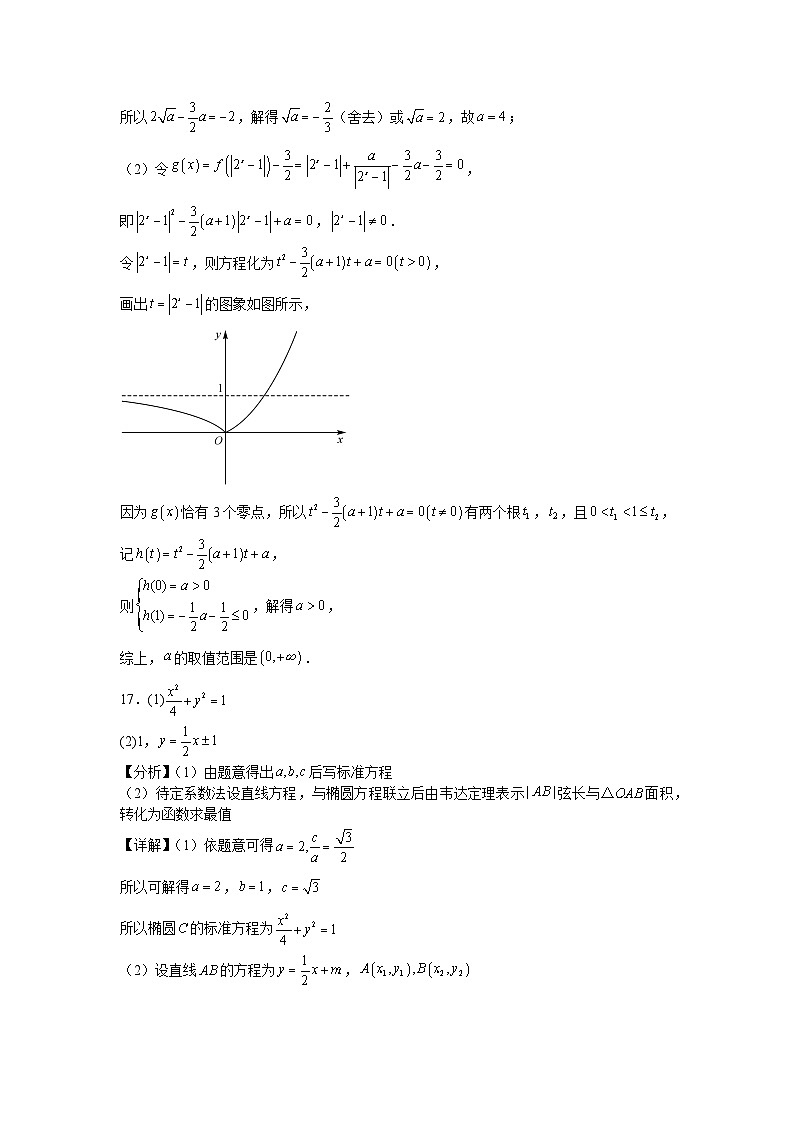 所以2√a-3/2a=-2,解得√a=-2/3(舍去)或√a=2,故a=4;
(2)令g(x)=f(|2ˣ-1|)-3/2=|2ˣ-1|+a/|2ˣ-1|-3/2a-3/2=0,
即|2ˣ-1|²-3/2(a+1)|2ˣ-1|+a=0,|2ˣ-1|≠0.
令|2ˣ-1|=t,则方程化为t²-3/2(a+1)t+a=0(t>0),
画出t=|2ˣ-1|的图象如图所示,
y
1
O
x
因为g(x)恰有3个零点,所以t²-3/2(a+1)t+a=0(t≠0)有两个根t₁,t₂,且0<t₁<1≤t₂,
记h(t)=t²-3/2(a+1)t+a,
则{h(0)=a>0
h(1)=-1/2a-1/2≤0,解得a>0,
综上,a的取值范围是(0,+∞).
17.(1)x²/4+y²=1
(2)1,y=1/2x±1
【分析】(1)由题意得出a,b,c后写标准方程
(2)待定系数法设直线方程,与椭圆方程联立后由韦达定理表示|AB|弦长与△OAB面积,
转化为函数求最值
【详解】(1)依题意可得a=2,c/a=√3/2
所以可解得a=2,b=1,c=√3
所以椭圆C的标准方程为x²/4+y²=1
(2)设直线AB的方程为y=1/2x+m,A(x₁,y₁),B(x₂,y₂)